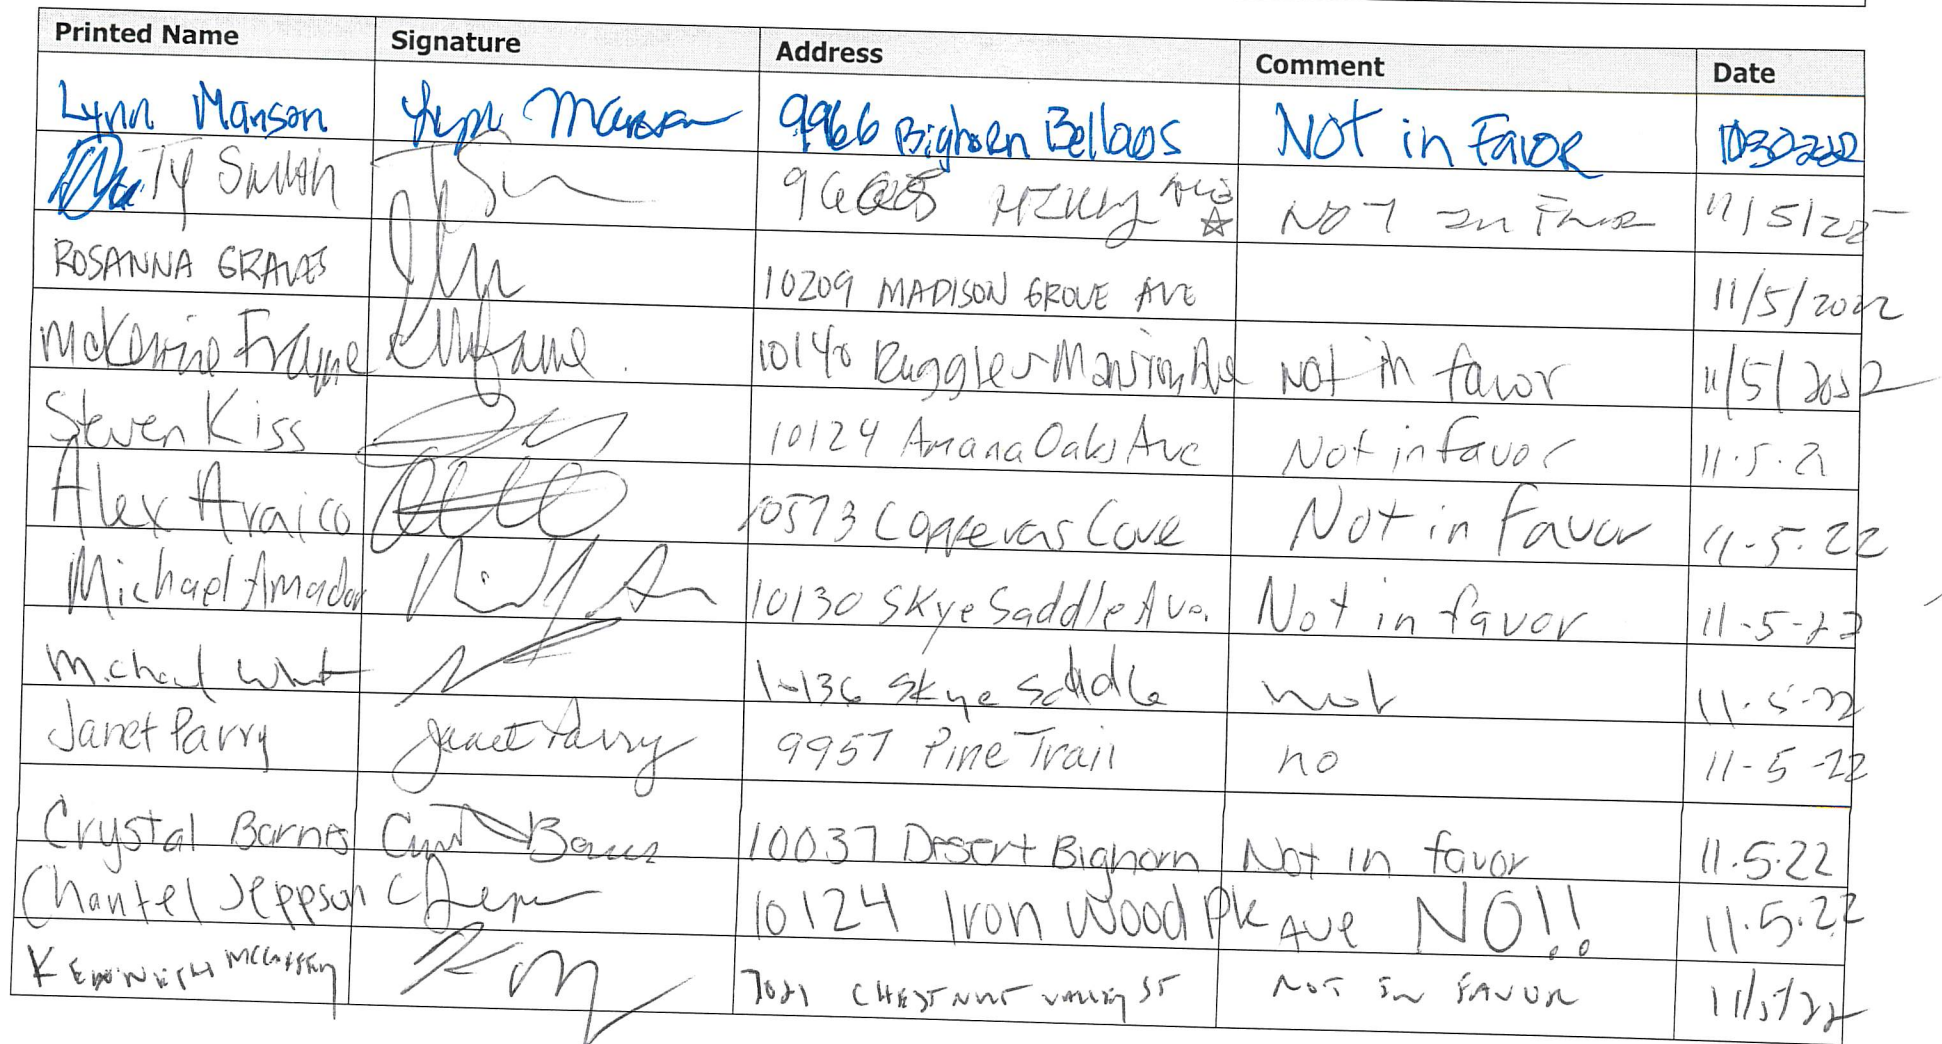 Printed Name Signature Address Comment Date
Lynn Manson Lynn Manson 9966 Bighorn Bellaos Not in Favor
Ty Smith Not in Favor 11/5/22
ROSANNA GRAVES 10209 MADISON GROVE AVE 11/5/2022
McKenzie Frayne 10140 Ruggles Mansion Ave not in favor 11/5/2022
Steven Kiss 10124 Amana Oaks Ave Not in favor 11.5.2
Alex Araico 10573 Copperas Cove Not in Favor 11-5-22
Michael Amador 10130 Skye Saddle Ave. Not in favor 11-5-22
Michael Skye Saddle not 11.5-22
Janet Parry Janet Parry 9957 Pine Trail no 11-5-22
Crystal Barnes 10037 Desert Bighorn Not in favor 11.5.22
Chantel Jeppson 10124 Iron Wood Pk Ave NO!! 11.5.22
CHESTNUT VALLEY ST NOT IN FAVOR 11/5/22